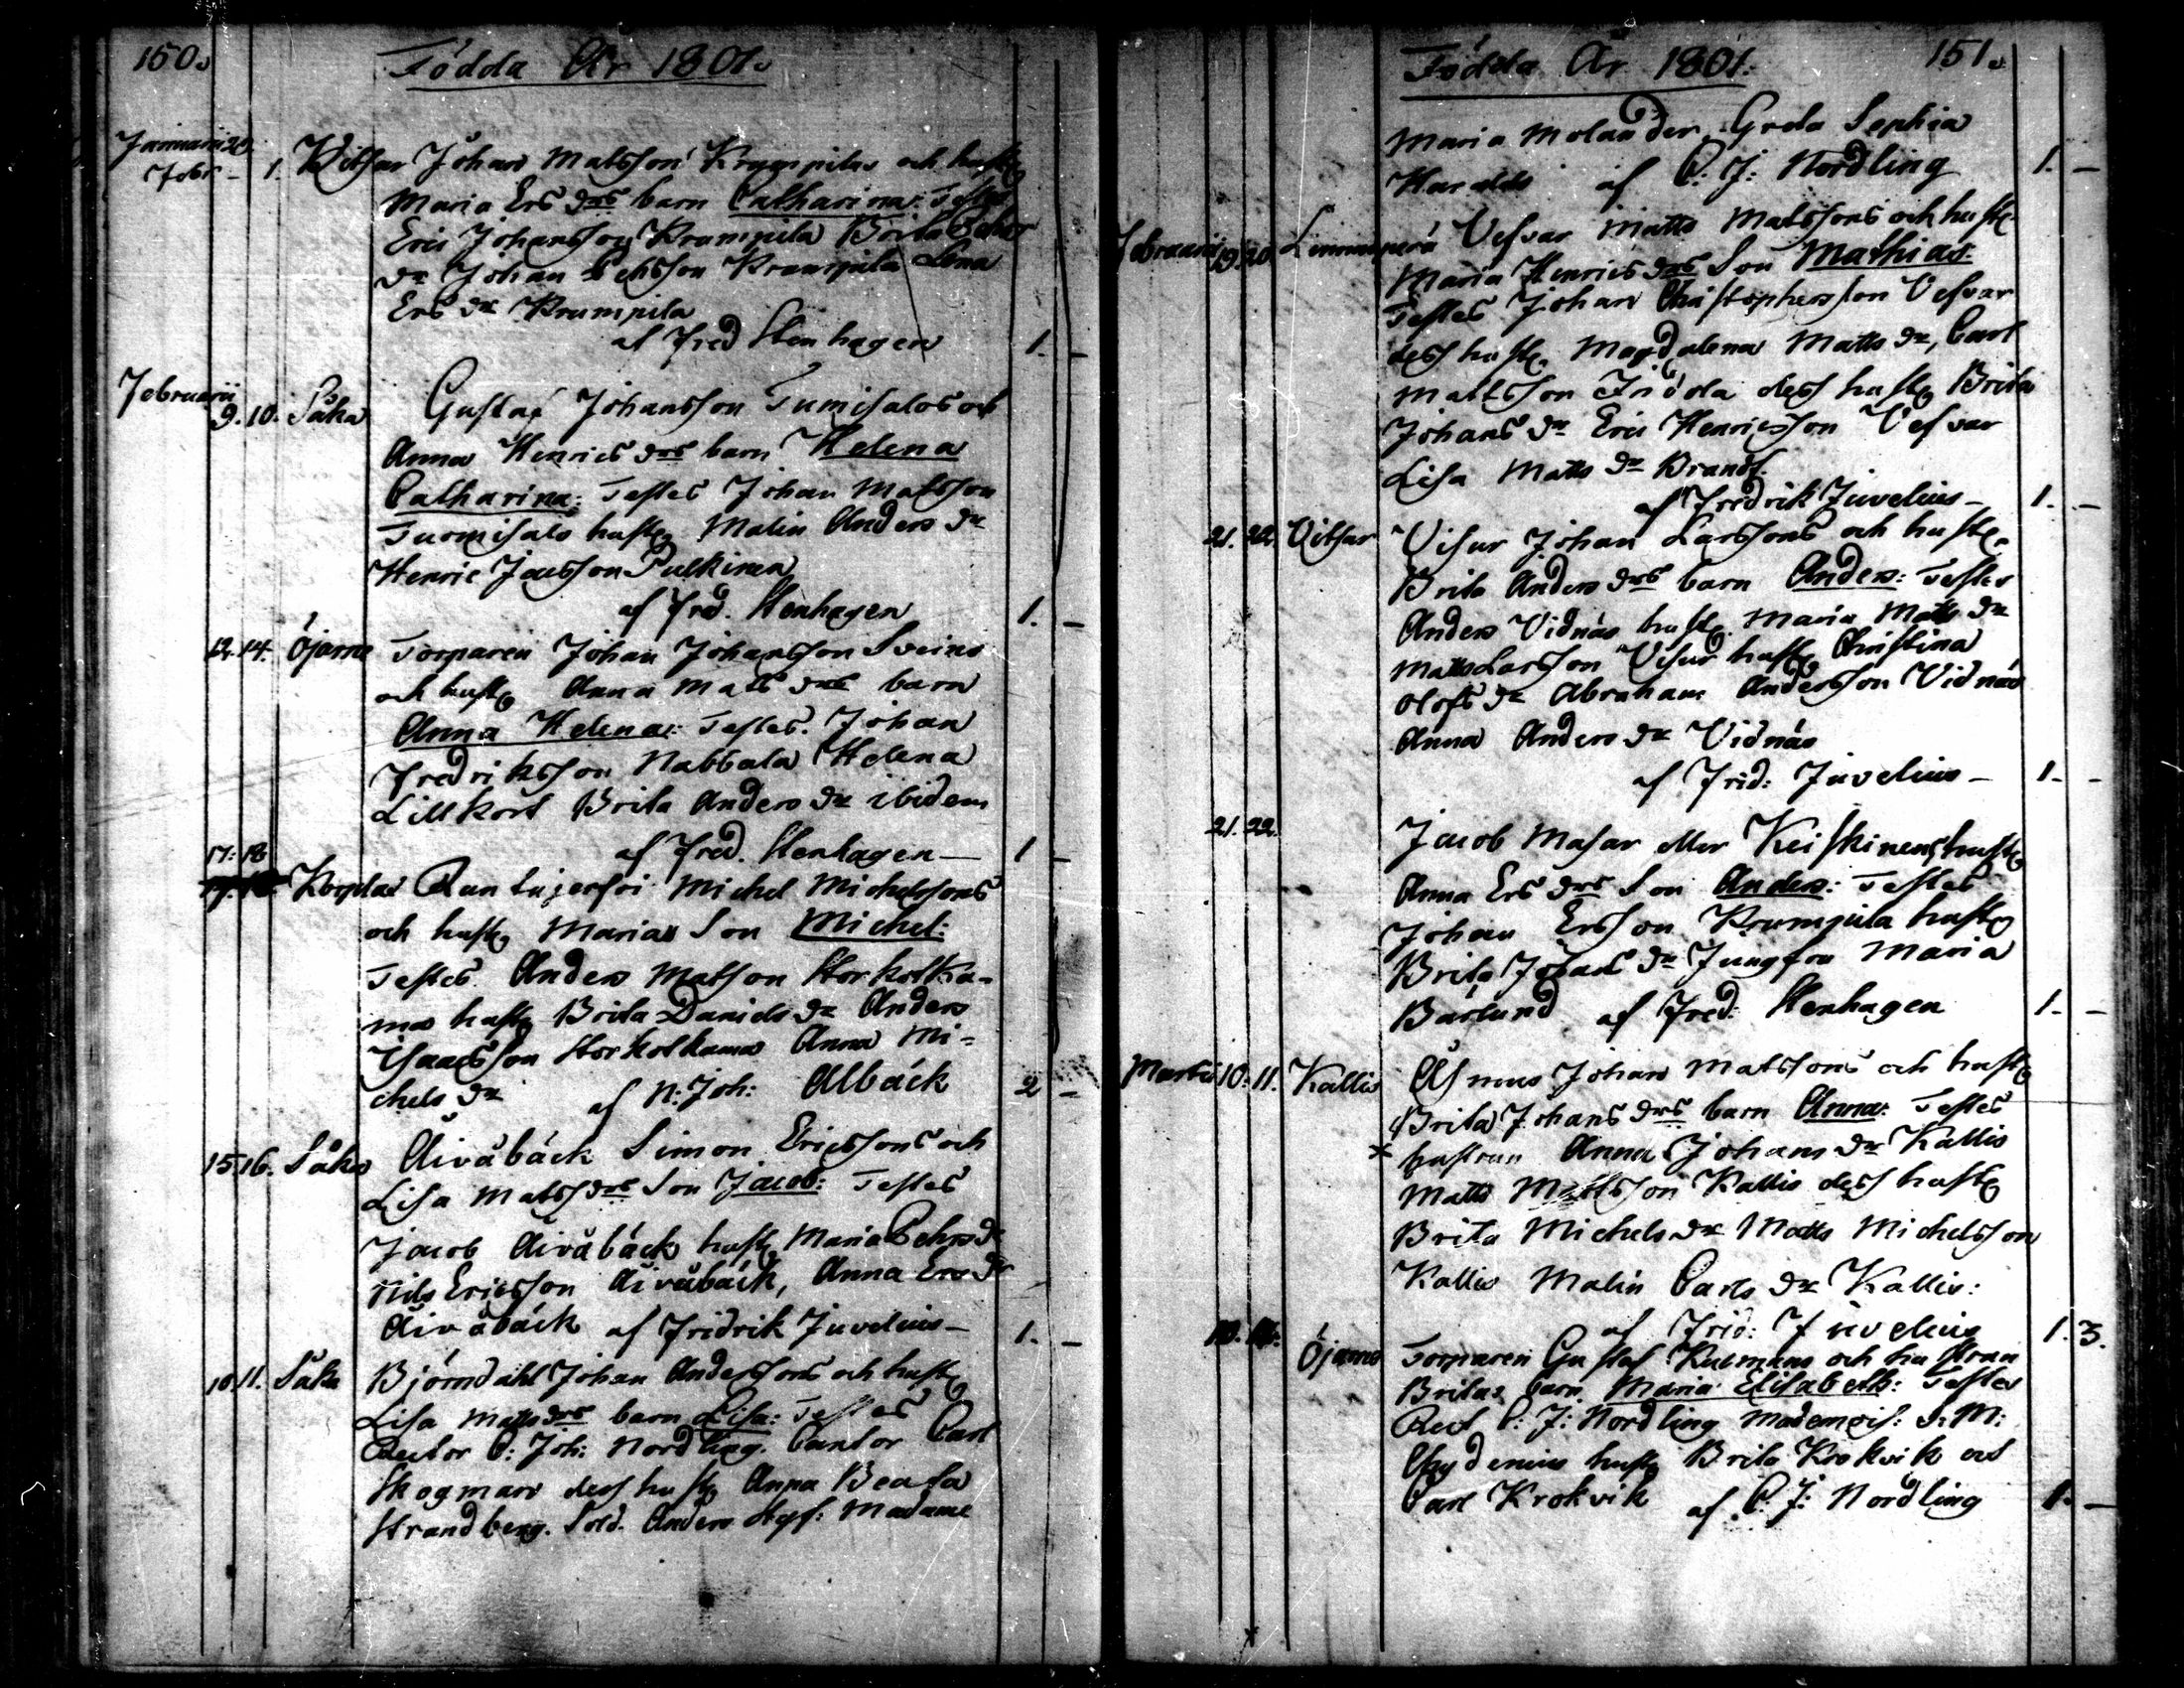 150.
Födda År 1801.
Januarii 29.
Febr. - 1. Witsar Johan Matsson Krumpilas och hust.
Maria Ers drs barn Catharina: Testes
Eric Johansson Krumpila Brita Pehrs
dr Johan Pehsson Krumpila Lena
Ers dr Krumpila
af Fred Stenhagen 1. -
Februarii
9. 10. Såka Gustaf Johansson Tumisalos och
Anna Henrics drs barn Helena
Catharina: Testes Johan Matsson
Tuomisalo hust. Malin Anders dr
Henric Jacsson Pulkinen
af Fred. Stenhagen 1. -
12. 14. Öjarne Torparen Johan Johansson Sveins
och hust. Anna Mats drs barn
Anna Helena: Testes. Johan
Fredriksson Nabbala Helena
Lillkort Brita Anders dr ibidem
af Fred. Stenhagen - 1 -
17. 18
Korplax Michel Michelssons
och hust. Marias Son Michel:
Testes. Anders Matson Storkolka-
mas hust. Brita Daniels dr Anders
Isaacsson Storkolkama Anna Mi-
chels dr af N: Joh: Albäck 2 -
15. 16. Såka Äiväbäck Simon Ericssons och
Lisa Matss drs Son Jacob: Testes
Jacob Äiväbäck hust. Maria Pehrs dr
Nils Ericsson Äiväbäck, Anna Ers dr
Äiväbäck af Fridrik Juvelius - 1. -
10. 11. Såka Björndahl Johan Anderssons och hust.
Lisa Matts drs barn Lisa: Testes
Rector C: Joh: Nordling. Cantor Carl
Skogman dess hust. Anna Beata
Strandberg. Sold. Anders Madame
Födda År 1801. 151.
Maria Molander, Greta Sophia
Haralds af C: J: Nordling 1. -
Februarii 19. 20 Limmanperä Vesvar Matts Matssons och hust.
Maria Henrics drs Son Mathias.
Testes Johan Christophersson Vesvar
dess hust. Magdalena Matts dr, Carl
Mattsson Friöda dess hust. Brita
Johans dr Eric Henricsson Vesvar
Lisa Matts dr Brandt.
af Fredrik Juvelius - 1. -
21. 22. Vitsar Visur Johan Larssons och hust.
Brita Anders drs barn Anders: Testes
Anders Vidnäs hust. Maria Matts dr
Matts Larsson Visur hust. Christina
Olofs dr Abraham Andersson Vidnäs
Anna Anders dr Vidnäs
af Frid: Juvelius - 1 - -
21. 22. Jacob Masar eller Keiskinens hust.
Anna Ers drs Son Anders: Testes
Johan Ersson Krumpila hust.
Brita Johans dr Jungfru Maria
Barlund af Fred: Stenhagen 1. -
Martii 10. 11. Kallis Åsmus Johan Matssons och hust.
Brita Johans drs barn Anna: Testes
x hustrun Anna Johans dr Kallis
Matts Mattsson Kallis dess hust.
Brita Michels dr Matts Michelsson
Kallis Malin Carls dr Kallis:
af Frid: Juvelius 1. 3.
Öjarne Torparen Gustaf Kulmans och hustrun
Britas barn Maria Elisabeth: Testes
Rect C: J: Nordling Mademois: S: M:
Chydenius hust. Brita Krokvik och
Carl Krokvik af C: J: Nordling 1. -